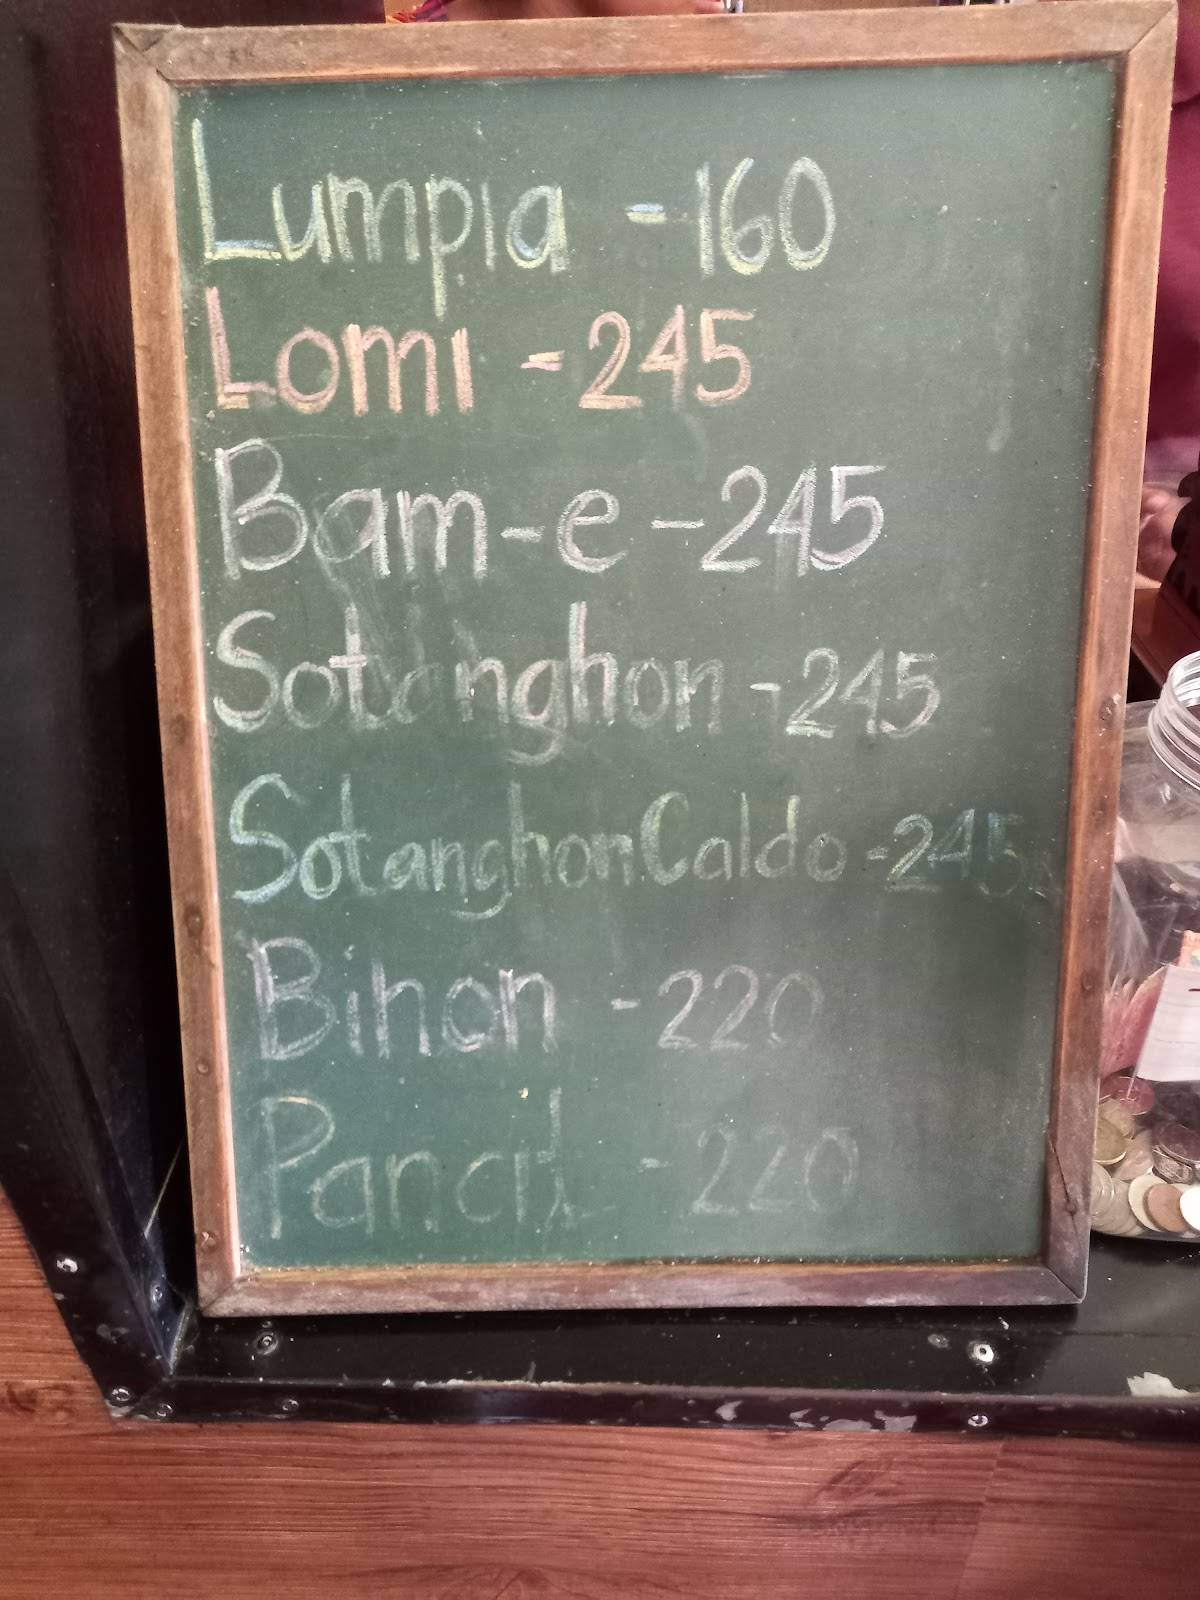 Lumpia - 160
Lomi - 245
Bam-e - 245
Sotanghon - 245
Sotanghon Caldo - 245
Bihon - 220
Pancit - 220